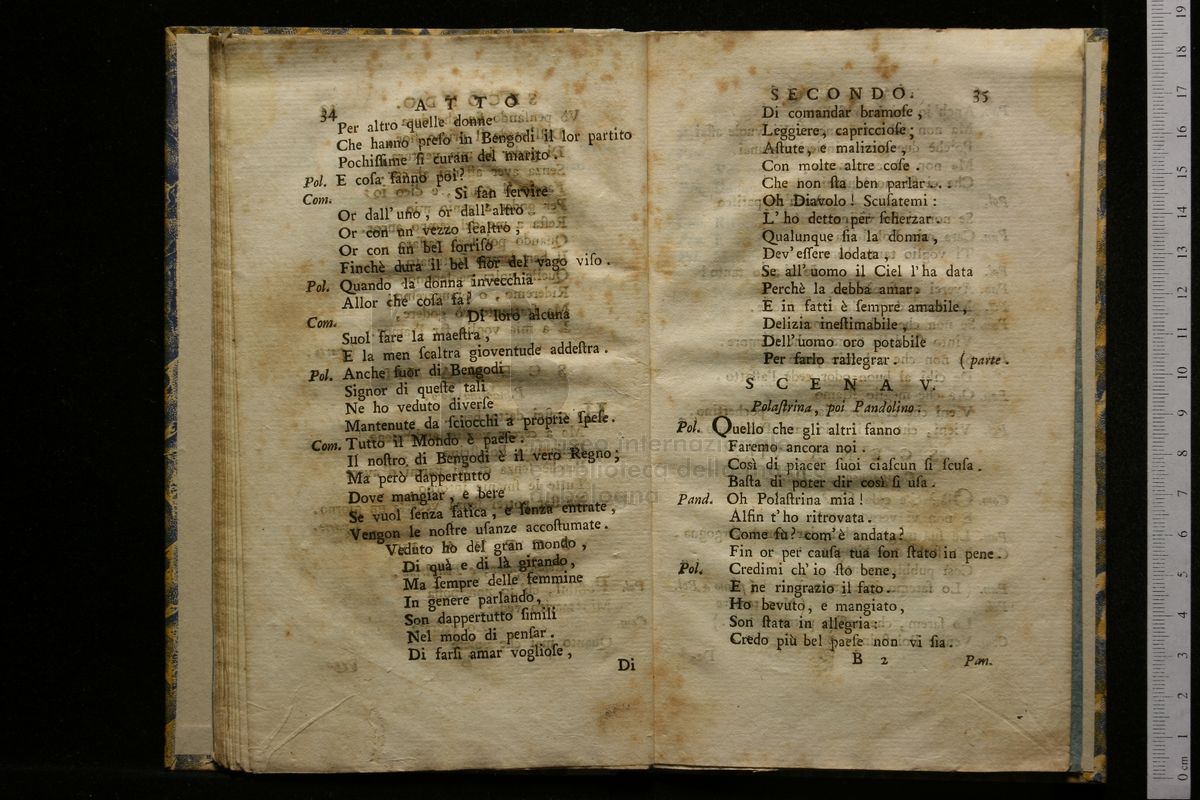 34 ATTO
Per altro quelle donne
Che hanno preſo in Bengodi il lor partito
Pochiſſime ſi curan del marito.
Pol. E coſa fanno poi?
Com. Si fan ſervire
Or dall' uno, or dall' altro,
Or con un vezzo ſcaltro,
Or con un bel ſorriſo
Finchè dura il bel fior del vago viſo.
Pol. Quando la donna invecchia
Allor che coſa fa?
Com. Di loro alcuna
Suol fare la maeſtra,
E la men ſcaltra gioventude addeſtra.
Pol. Anche fuor di Bengodi
Signor di queſte tali
Ne ho veduto diverſe
Mantenute da ſciocchi a proprie ſpeſe.
Com. Tutto il Mondo è paeſe.
Il noſtro di Bengodi è il vero Regno;
Ma però dappertutto
Dove mangiar, e bere
Se vuol ſenza fatica, e ſenza entrate,
Vengon le noſtre uſanze accoſtumate.
Veduto ho del gran mondo,
Di quà e di là girando,
Ma ſempre delle femmine
In genere parlando,
Son dappertutto ſimili
Nel modo di penſar.
Di farſi amar voglioſe,
Di
SECONDO. 35
Di comandar bramoſe,
Leggiere, capriccioſe;
Aſtute, e malizioſe,
Con molte altre coſe.
Che non ſta ben parlar...
Oh Diavolo! Scuſatemi:
L' ho detto per ſcherzar
Qualunque ſia la donna,
Dev' eſſere lodata,
Se all' uomo il Ciel l' ha data
Perchè la debba amar.
E in fatti è ſempre amabile,
Delizia ineſtimabile,
Dell' uomo oro potabile
Per farlo rallegrar. (parte.
SCENA V.
Polaſtrina, poi Pandolino.
Pol. Quello che gli altri fanno
Faremo ancora noi.
Così di piacer ſuoi ciaſcun ſi ſcuſa.
Baſta di poter dir così ſi uſa.
Pand. Oh Polaſtrina mia!
Alfin t' ho ritrovata.
Come fù? com' è andata?
Fin or per cauſa tua ſon ſtato in pene.
Pol. Credimi ch' io ſto bene,
E ne ringrazio il fato.
Ho bevuto, e mangiato,
Son ſtata in allegria:
Credo più bel paeſe non vi ſia.
B 2 Pan.